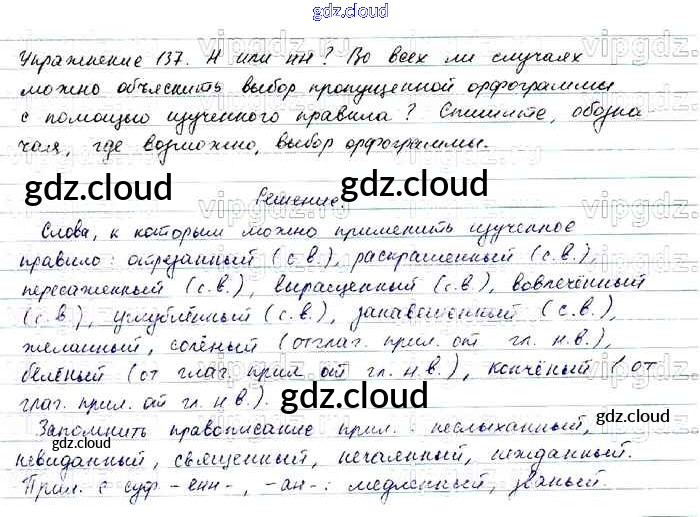 gdz.cloud
Упражнение 137. Н или нн? Во всех ли случаях
можно объяснить выбор пропущенной орфограммы
с помощью изученного правила? Спишите, обозна-
чая, где возможно, выбор орфограммы.
gdz.cloud gdz.cloud
Решение.
Слова, к которым можно применить изученное
правило: отрезанный (с.в.), раскрашенный (с.в.),
пересаженный (с.в.), выращенный (с.в.), вовлечённый
(с.в.), углублённый (с.в.), занавешенный (с.в.),
желанный, солёный (отглаг. прил. от гл. н.в.),
белёный (от глаг. прил. от гл. н.в.), копчёный (от
глаг. прил. от гл. н.в.).
gdz.cloud
Запомнить правописание прил.: неслыханный,
gdz.cloud gdz.cloud
невиданный, священный, нечаянный, нежданный.
Прил. с суф -енн-, -ан-: медленный, званый.